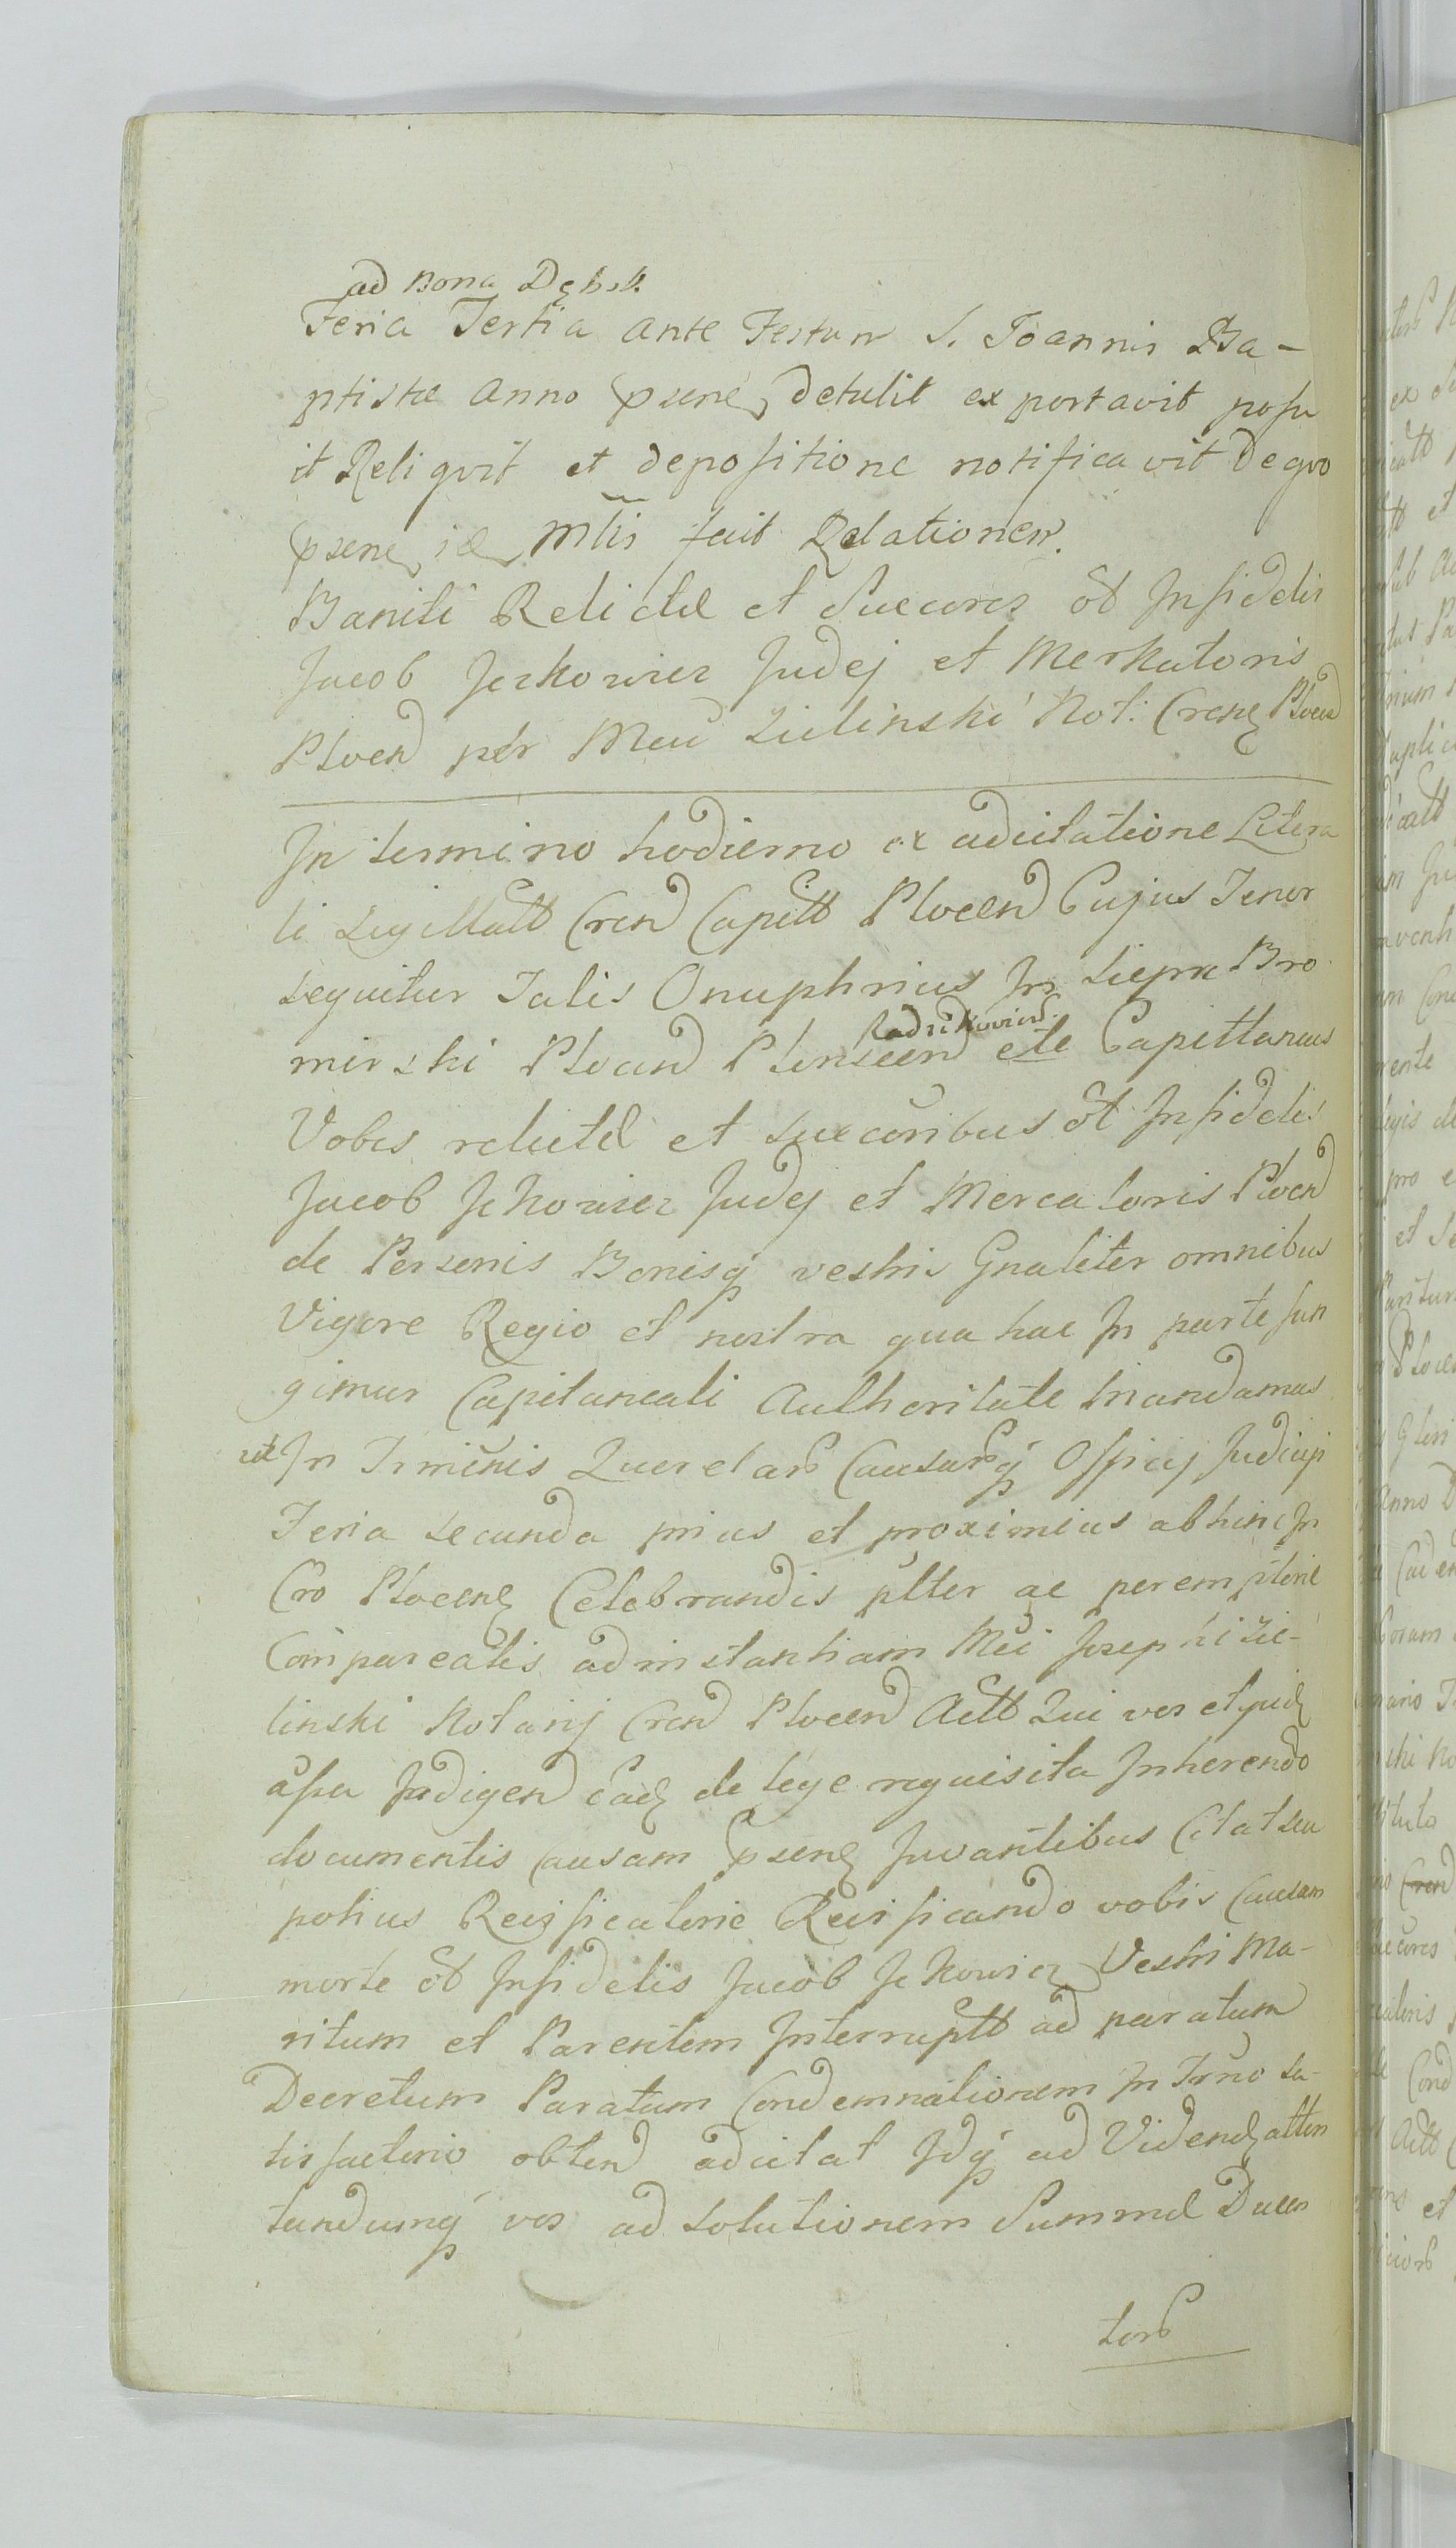 ad Bona Dęhsk.
Feria Tertia ante Festum S. Joannis Ba-
ptistæ Anno psene detulit exportavit posu
it Reliqvit et depositione notificavit de qvo
psene Mtis fecit Relationem.
Baniti Relictæ et Succores ol̃ Infidelis
Jacob Jezkowicz Judej et Merkatoris
Ploen̄d per Meu Zielinski Not: Crens Ploen̄d
In termino hodierno ex adcitatione Litera
li Sigillatt Cren̄d Capitt Plocen̄d Cujus Tenor
Sequitur Talis Onuphrius In Siepra Bro
mirski Plocen̄d Plonscen̄d Radzikovien̄d. etc Capittaneus
Vobis relictæ et succoribus ol̃ Infidelis
Jacob Jckowicz Judej et Mercatoris Plocen̄d
de Personis Bonisq̃ vestris Gnaliter omnibus
Vigore Regio et nostra qua hac In parte fun
gimur Capitaneali Authoritate Mandamus
ut In Trminis Querelarũ Causarũq̃ Officij Judicij
Feria secunda prius et proximius abhinc In
Cro Plocens Celebrandis pltter ac peremptorie
Compareatis ad instantiam Mci Josephi Zie-
linski Notarij Cren̄d Plocen̄d Actt Qui vos
Indigen̄d de lege requisita Inherendo
documentis causam psens Juvantibus Citat seu
potius Reisificatorie Reisificando vobis Causam
morte ol̃ Infidelis Jacob Jckowicz Vestri Ma-
ritum et Parentem Interruptt ad paratum
Decretum Paratam Condemnationem In Trno Sa-
tisfactorio obten̄d adcitat Idq̃ ad Videnḍ atten
tandumq̃ vos ad solutionem Summæ Ducen
torũ